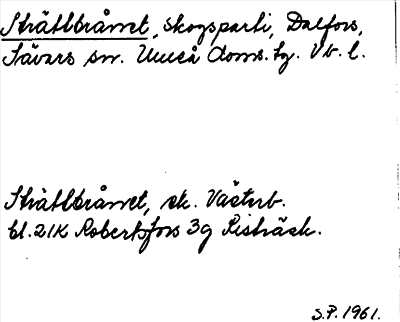 Stråtbrånet, skogsparti, Dalfors,
Sävars sn. Umeå doms. tg. Vb. l.
Stråtbrånet, sk. Västerb.
bl. 21K Robertsfors 3g Risträsk.
S.P. 1961.